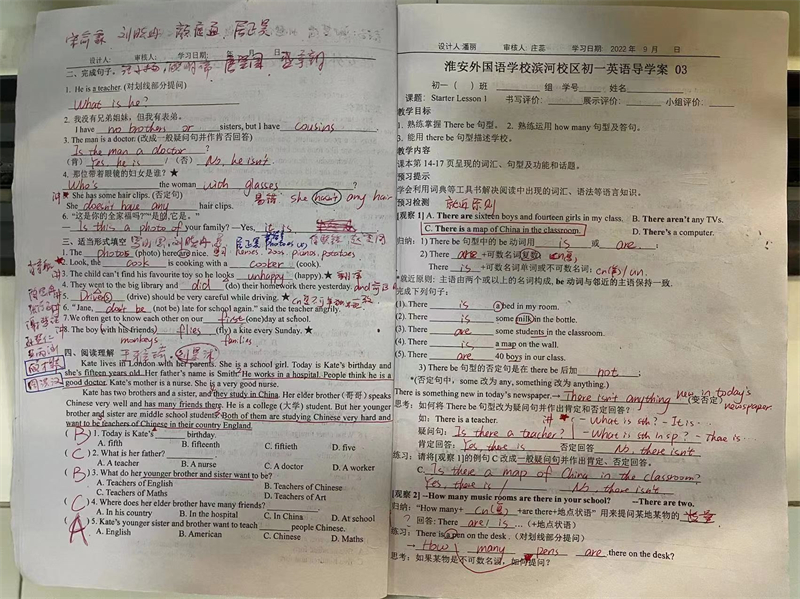 设计人: 审核人: 学习日期: 年 月 日
二、完成句子。
1. He is a teacher. (对划线部分提问)
What is he?
2. 我没有兄弟姐妹，但我有表弟。
I have no brothers or sisters, but I have cousins.
3. The man is a doctor. (改成一般疑问句并作肯否回答)
Is the man a doctor?
(肯) Yes, he is. / (否) No, he isn't.
4. 那位带着眼镜的妇女是谁？★
Who's the woman with glasses?
5. She has some hair clips. (否定句) 易错: she hasn't any hair
She doesn't have any hair clips.
6. “这是你的全家福吗？”“是的,它是。”
— Is this a photo of your family? —Yes, it is.
三、适当形式填空
1. The photos (photo) here are nice.
2. Look, the cook is cooking with a cooker (cook).
3. The child can't find his favourite toy so he looks unhappy (happy).★
4. They went to the big library and did (do) their homework there yesterday.
5. Drivers (drive) should be very careful while driving. ★
6. “Jane, don't be (not be) late for school again.” said the teacher angrily.
7. We often get to know each other on our first (one) day at school.
8. The boy with his friends flies (fly) a kite every Sunday.★
monkeys families
四、阅读理解
Kate lives in London with her parents. She is a school girl. Today is Kate's birthday and
she's fifteen years old. Her father's name is Smith. He works in a hospital. People think he is a
good doctor. Kate's mother is a nurse. She is a very good nurse.
Kate has two brothers and a sister, and they study in China. Her elder brother (哥哥) speaks
Chinese very well and has many friends there. He is a college (大学) student. But her younger
brother and sister are middle school students. Both of them are studying Chinese very hard and
want to be teachers of Chinese in their country England.
( B ) 1. Today is Kate's ______ birthday.
A. fifth B. fifteenth C. fiftieth D. five
( C ) 2. What is her father?
A. A teacher B. A nurse C. A doctor D. A worker
( B ) 3. What do her younger brother and sister want to be?
A. Teachers of English B. Teachers of Chinese
C. Teachers of Maths D. Teachers of Art
( C ) 4. Where does her elder brother have many friends?
A. In his country B. In the hospital C. In China D. At school
( A ) 5. Kate's younger sister and brother want to teach ______ people Chinese.
A. English B. American C. Chinese D. Maths
设计人:潘丽 审核人: 庄蕊 学习日期: 2022 年 9 月 日
淮安外国语学校滨河校区初一英语导学案 03
初一 ( ) 班 组 学号 姓名
课题: Starter Lesson 1 书写评价: 展示评价: 小组评价:
教学目标
1. 熟练掌握 There be 句型。 2. 熟练运用 how many 句型及答句。
3. 能用 there be 句型描述学校。
教学内容
课本第 14-17 页呈现的词汇、句型及功能和话题。
预习提示
学会利用词典等工具书解决阅读中出现的词汇、语法等语言知识。
预习检测 就近原则
[观察 1] A. There are sixteen boys and fourteen girls in my class. B. There aren't any TVs.
C. There is a map of China in the classroom. D. There's a computer.
归纳: 1) There be 句型中的 be 动词用 is 或 are;
2) There are +可数名词复数;
There is +可数名词单词或不可数名词; cn单/un.
*就近原则: 主语由两个或以上的名词构成, be 动词与邻近的主语保持一致.
完成下列句子:
(1). There is a bed in my room.
(2). There is some milk in the bottle.
(3). There are some students in the classroom.
(4). There is, a map on the wall.
(5). There are 40 boys in our class.
3) There be 句型的否定句是在 there be 后加 not;
*(否定句中, some 改为 any, something 改为 anything.)
There is something new in today's newspaper. → There isn't anything new in today's newspaper. (变否定)
思考: 如何将 There be 句型改为疑问句并作出肯定和否定回答?
如: There is a teacher. 讲 - What is sth? - It is…
疑问句: Is there a teacher? - What is sth in sp? - There is…
肯定回答: Yes, there is 否定回答 No, there isn't
练习: 请将[观察 1]的例句 C改成一般疑问句并作出肯定、否定回答。
C. Is there a map of China in the classroom?
Yes, there is / No, there isn't
[观察 2] --How many music rooms are there in your school? --There are two.
归纳: “How many+ cn(复) +are there+地点状语” 用来提问某地某物的 数量
? 回答: There are/is … (+地点状语)
练习: There is a pen on the desk. (对划线部分提问)
→ How many pens are there on the desk?
思考: 如果某物是不可数名词, 如何提问?